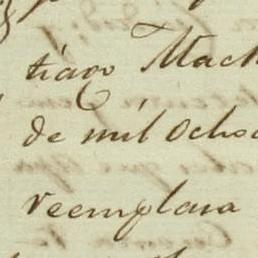 tiago Mach
de mil Ocho
reemplasa